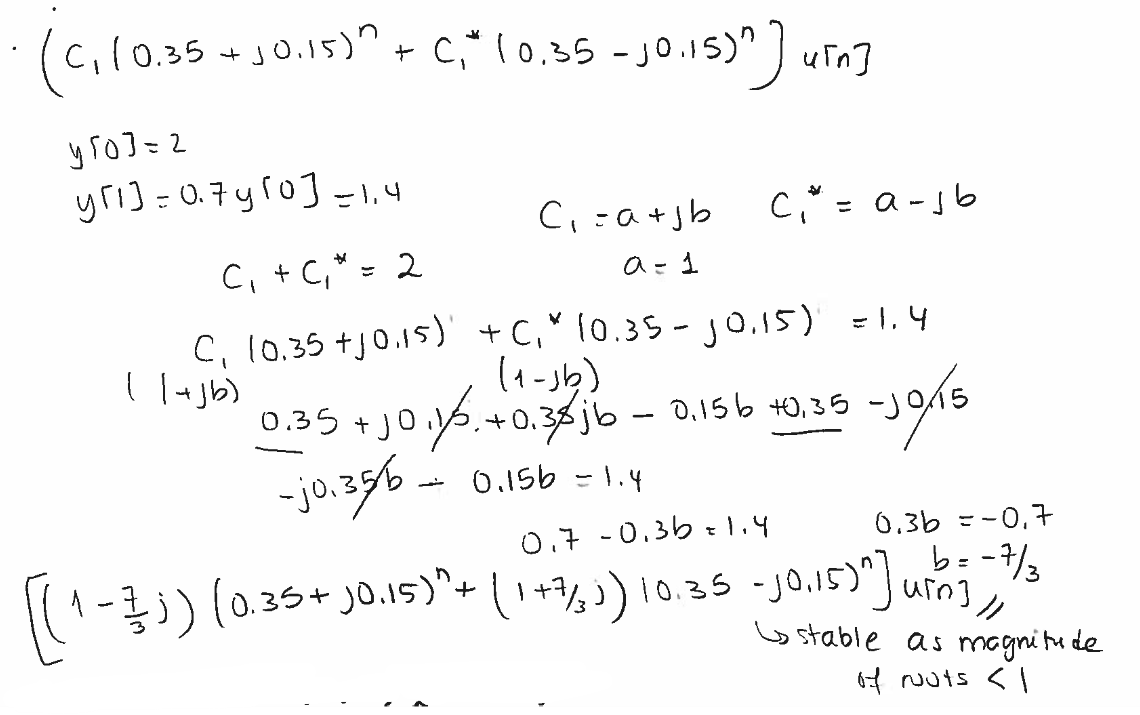 (C₁(0.35 + j0.15)ⁿ + C₁*(0.35 - j0.15)ⁿ] u[n]
y[0] = 2
y[1] = 0.7y[0] = 1.4
C₁ = a + jb C₁* = a - jb
C₁ + C₁* = 2 a = 1
C₁ (0.35 + j0.15) + C₁* (0.35 - j0.15) = 1.4
(1+jb) (1-jb)
0.35 + j0.15 + 0.35jb - 0.15b + 0.35 - j0.15
- j0.35b - 0.15b = 1.4
0.7 - 0.3b = 1.4 0.3b = -0.7
b = -7/3
[(1 - 7/3 j) (0.35 + j0.15)ⁿ + (1 + 7/3 j) (0.35 - j0.15)ⁿ] u[n] //
↳ stable as magnitude
of roots < 1